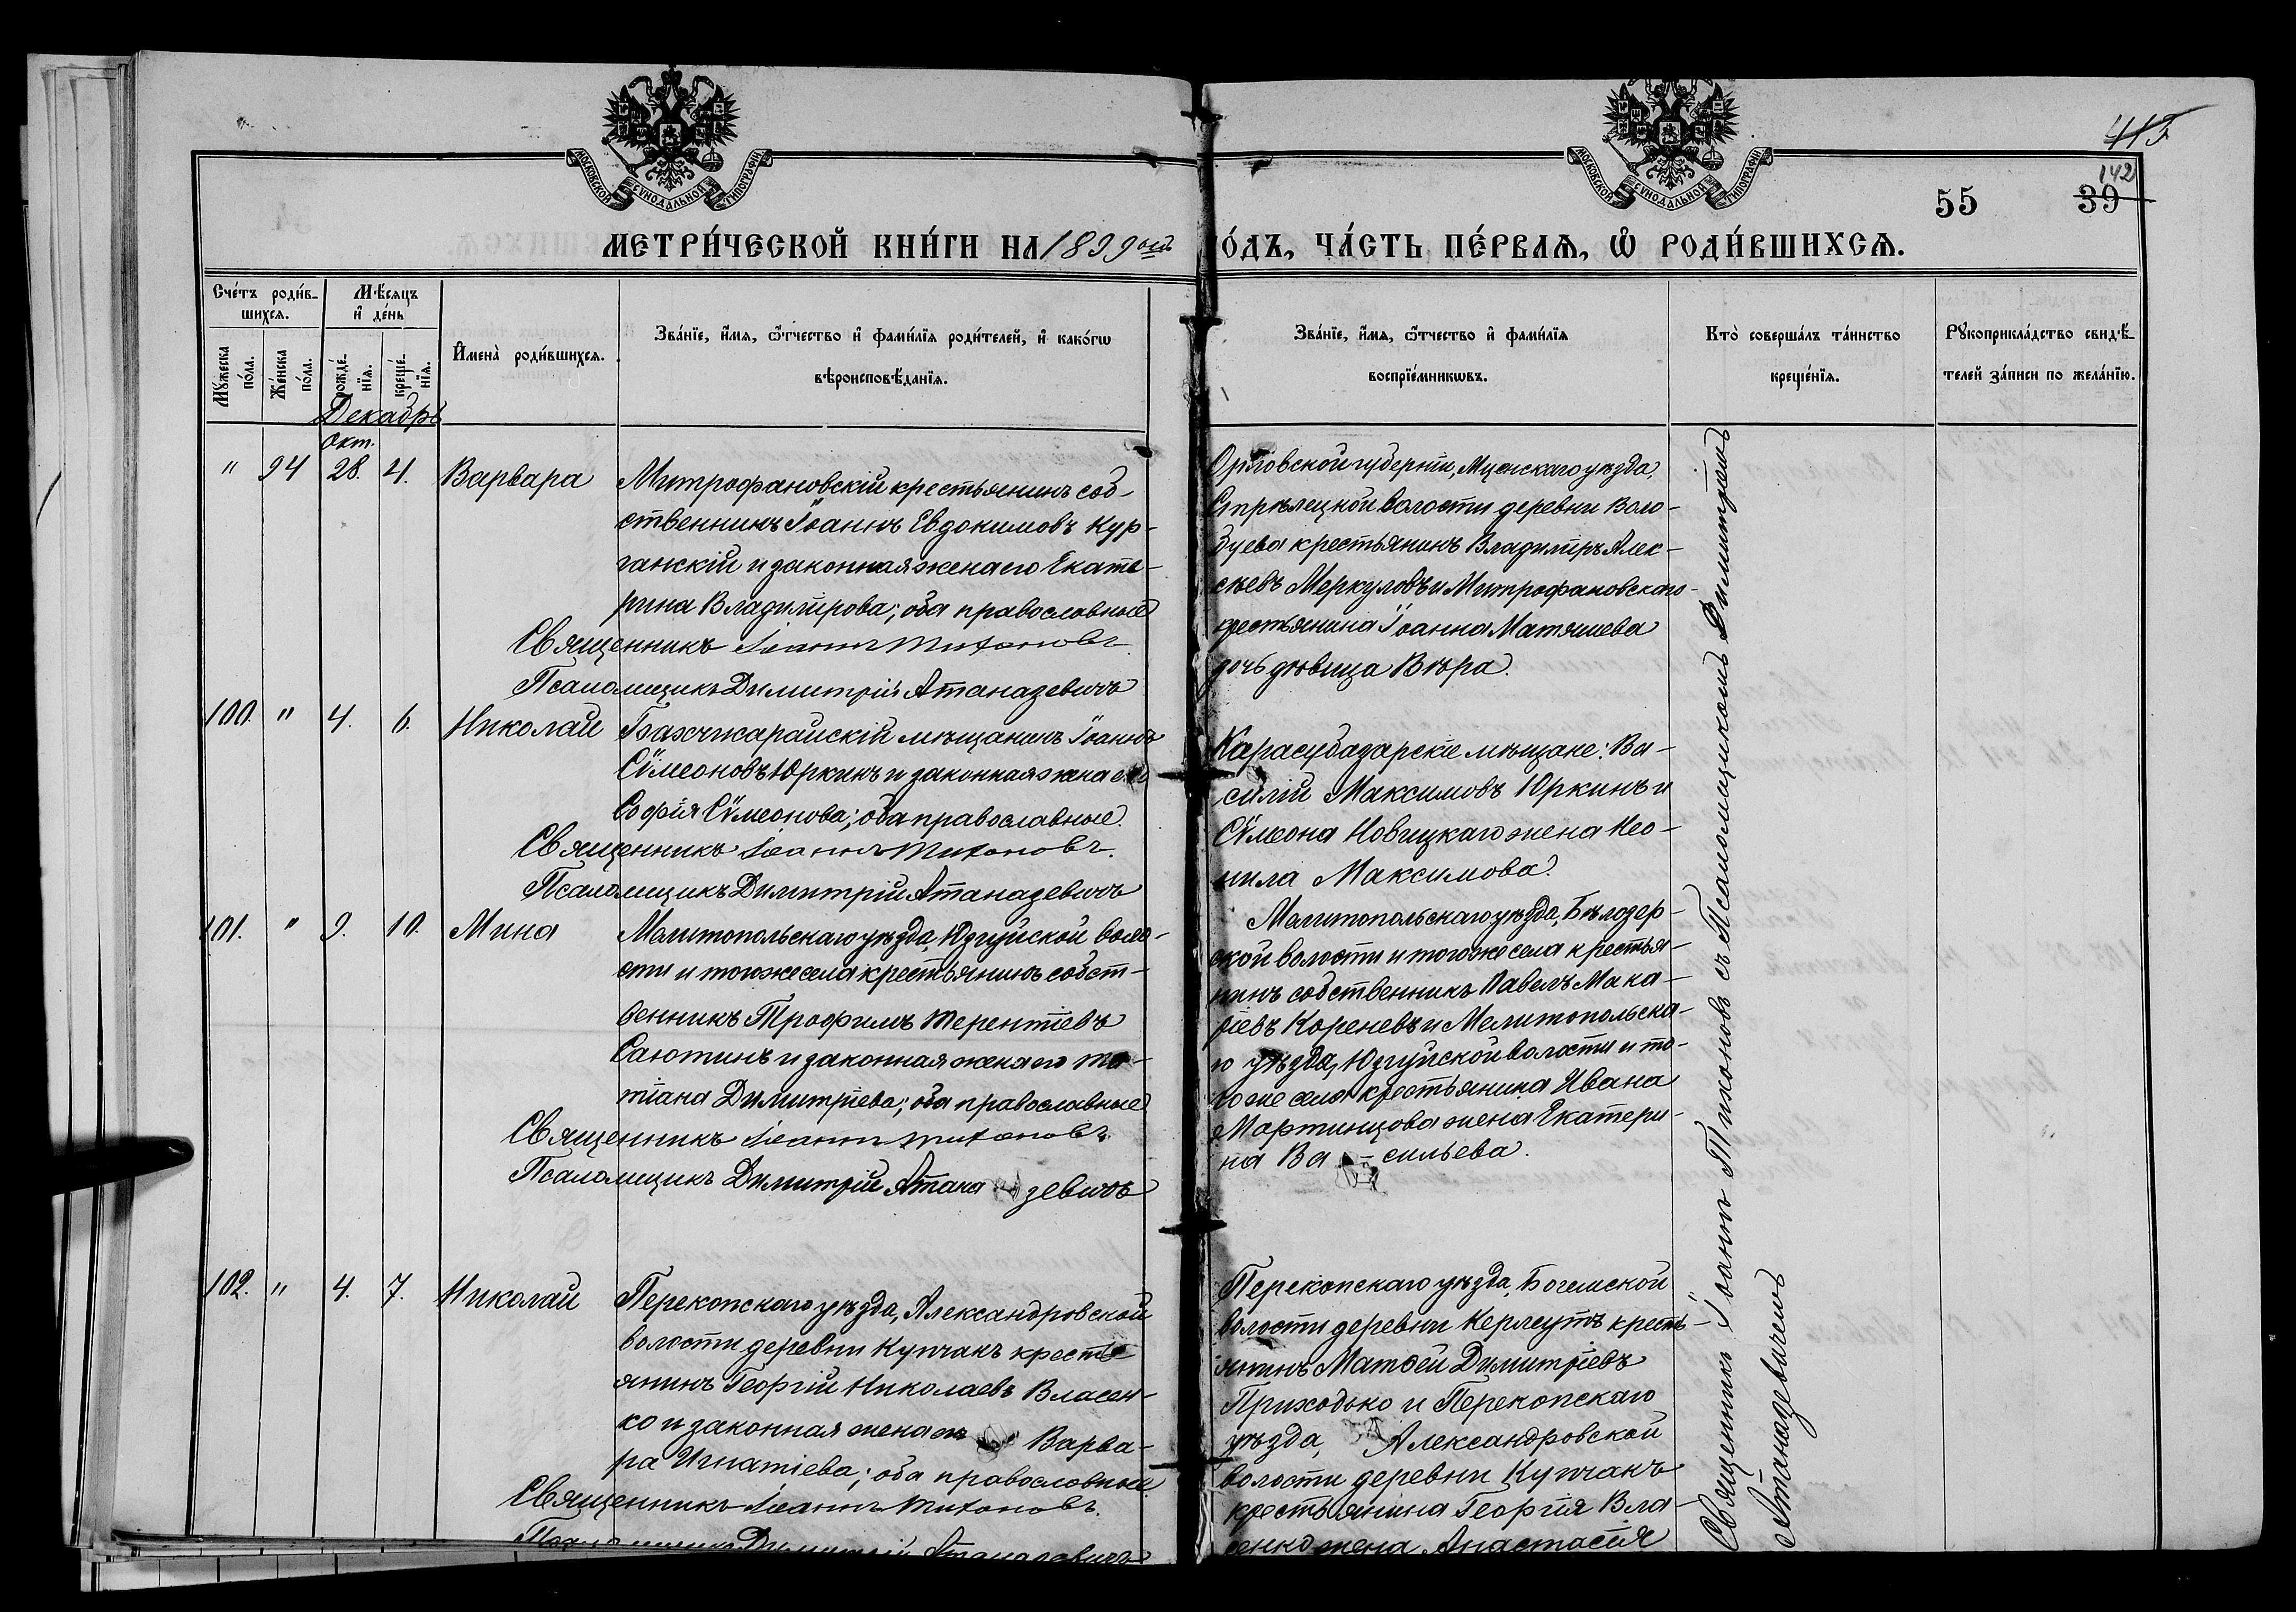 МОСКОВСКОЙ СѴНОДАЛЬНОЙ ТИПОГРАФІИ
МОСКОВСКОЙ СѴНОДАЛЬНОЙ ТИПОГРАФІИ
142
55 39
МЕТРИ́ЧЕСКОЙ КНИ́ГИ НА 1899ый
ГО́ДЪ, ЧА́СТЬ ПЕ́РВАѦ, Ѡ РОДИ́ВШИХСѦ.
Сче́тъ роди́в-
шихсѧ.
Мꙋ́жеска по́ла.
Же́нска по́ла.
Мѣ́сѧцъ
и҆ де́нь
рожде́-нїѧ.
креще́-нїѧ.
И҆мена̀ роди́вшихсѧ.
Зва́нїе, и҆́мѧ, ѻ҆́тчество и҆ фами́лїѧ роди́телей, и҆ како́гѡ
вѣроисповѣ́данїѧ.
Зва́нїе, и҆́мѧ, ѻ҆́тчество и҆ фами́лїѧ
воспрїе́мникѡвъ.
Кто̀ соверша́лъ та́инство
креще́нїѧ.
Рꙋкоприкла́дство свидѣ́-
телей за́писи по жела́нїю.
Декабрь
Окт.
" 94 28. 4. Варвара
Митрофановскій крестьянинъ соб-
ственникъ Іоаннъ Евдокимовъ Кур-
ганскій и законная жена его Екате-
рина Владимірова; оба православные
Священникъ Іоаннъ Тихоновъ.
Псаломщикъ Димитрій Атаназевичъ
Орловской губерніи, Мценскаго уѣзда,
Стрѣлецкой волости деревни Воло-
буева крестьянинъ Владиміръ Алек-
сѣевъ Меркуловъ и Митрофановскаго
крестьянина Іоанна Матяшева
дочь дѣвица Вѣра.
100. " 4. 6. Николай
Бахчисарайскій мѣщанинъ Іоаннъ
Сѵмеоновъ Юркинъ и законная жена его
Софія Сѵмеонова; оба православные.
Священникъ Іоаннъ Тихоновъ.
Псаломщикъ Димитрій Атаназевичъ
Карасубазарскіе мѣщане: Ва-
силій Максимовъ Юркинъ и
Сѵмеона Новицкаго жена Нео-
нила Максимова.
101. " 9. 10. Мина
Мелитопольскаго уѣзда, Юзкуйской воло-
сти и тогоже села крестьянинъ собст-
венникъ Трофимъ Терентіевъ
Саютинъ и законная жена его Та-
тіана Димитріева; оба православные
Священникъ Іоаннъ Тихоновъ.
Псаломщикъ Димитрій Атаназевичъ
Мелитопольскаго уѣзда, Бѣлозер-
ской волости и тогоже села крестья-
нинъ собственникъ Павелъ Мака-
ріевъ Кореневъ и Мелитопольска-
го уѣзда, Юзкуйской волости и то-
гоже села крестьянина Ивана
Мартинцова жена Екатери-
на Ва-сильева.
102. " 4. 7. Николай
Перекопскаго уѣзда, Александровской
волости деревни Купчакъ кресть-
янинъ Георгій Николаевъ Власен-
ко и законная жена его Варва-
ра Игнатіева; оба православные.
Священникъ Іоаннъ Тихоновъ.
Псаломщикъ Димитрій Атаназевичъ
Перекопскаго уѣзда, Богемской
волости деревни Керлеутъ кресть-
янинъ Матѳей Димитріевъ
Приходько и Перекопскаго
уѣзда, Александровской
волости деревни Купчакъ
крестьянина Георгія Вла-
сенко жена Анастасія
Священникъ Іоаннъ Тихоновъ съ Псаломщикомъ Димитріемъ
Атаназевичемъ